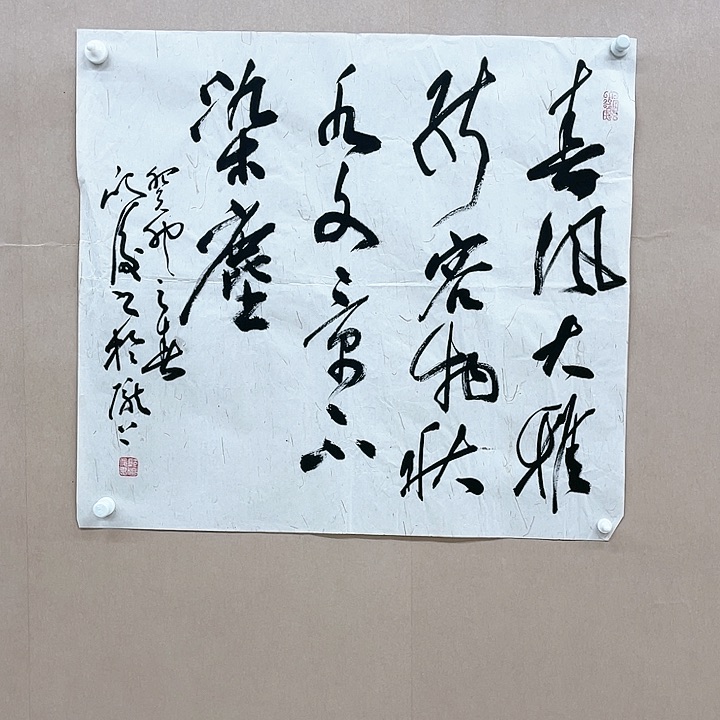 春风大雅
能容物秋
水文章不
染尘
癸卯之春